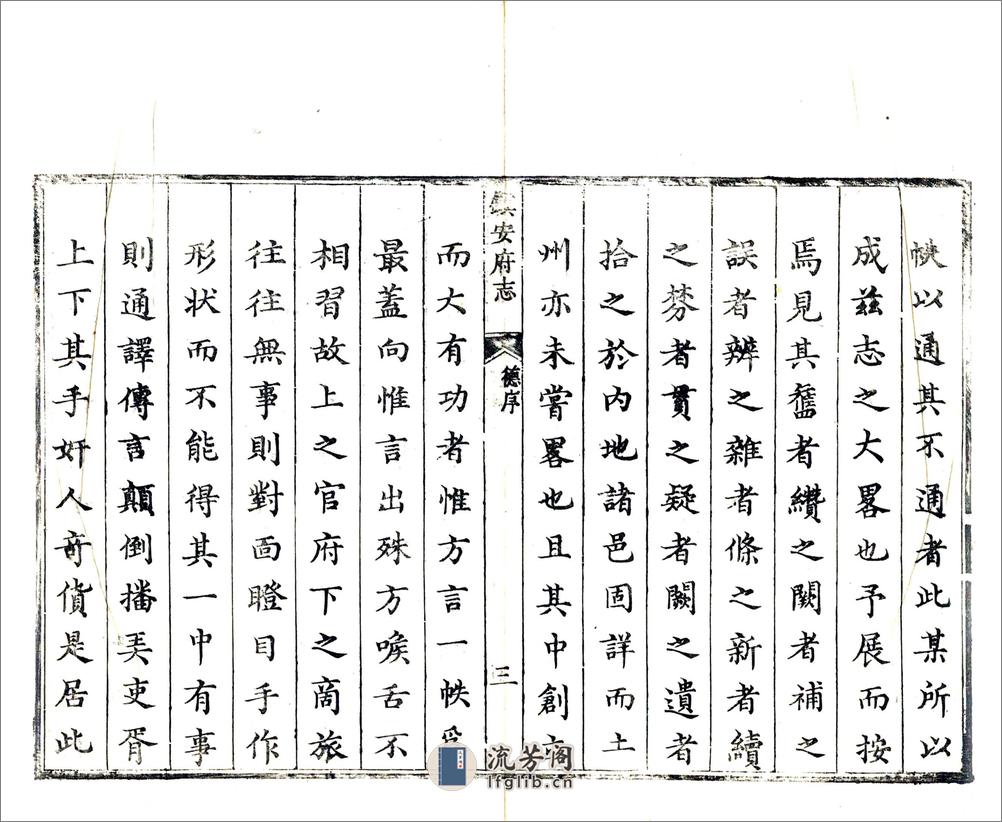 帙以通其不通者此某所以
成兹志之大畧也予展而按
焉見其舊者纘之闕者補之
誤者辨之雜者條之新者續
之棼者貫之疑者闕之遺者
拾之於内地諸邑固詳而土
州亦未嘗畧也且其中創
鎮安府志 德序 三
而大有功者惟方言一帙爲
最蓋向惟言出殊方喉舌不
相習故上之官府下之商旅
往往無事則對面瞪目手作
形状而不能得其一中有事
則通譯傳言顛倒播弄吏胥
上下其手奸人竒貨是居此
流芳阁
lfglib.cn